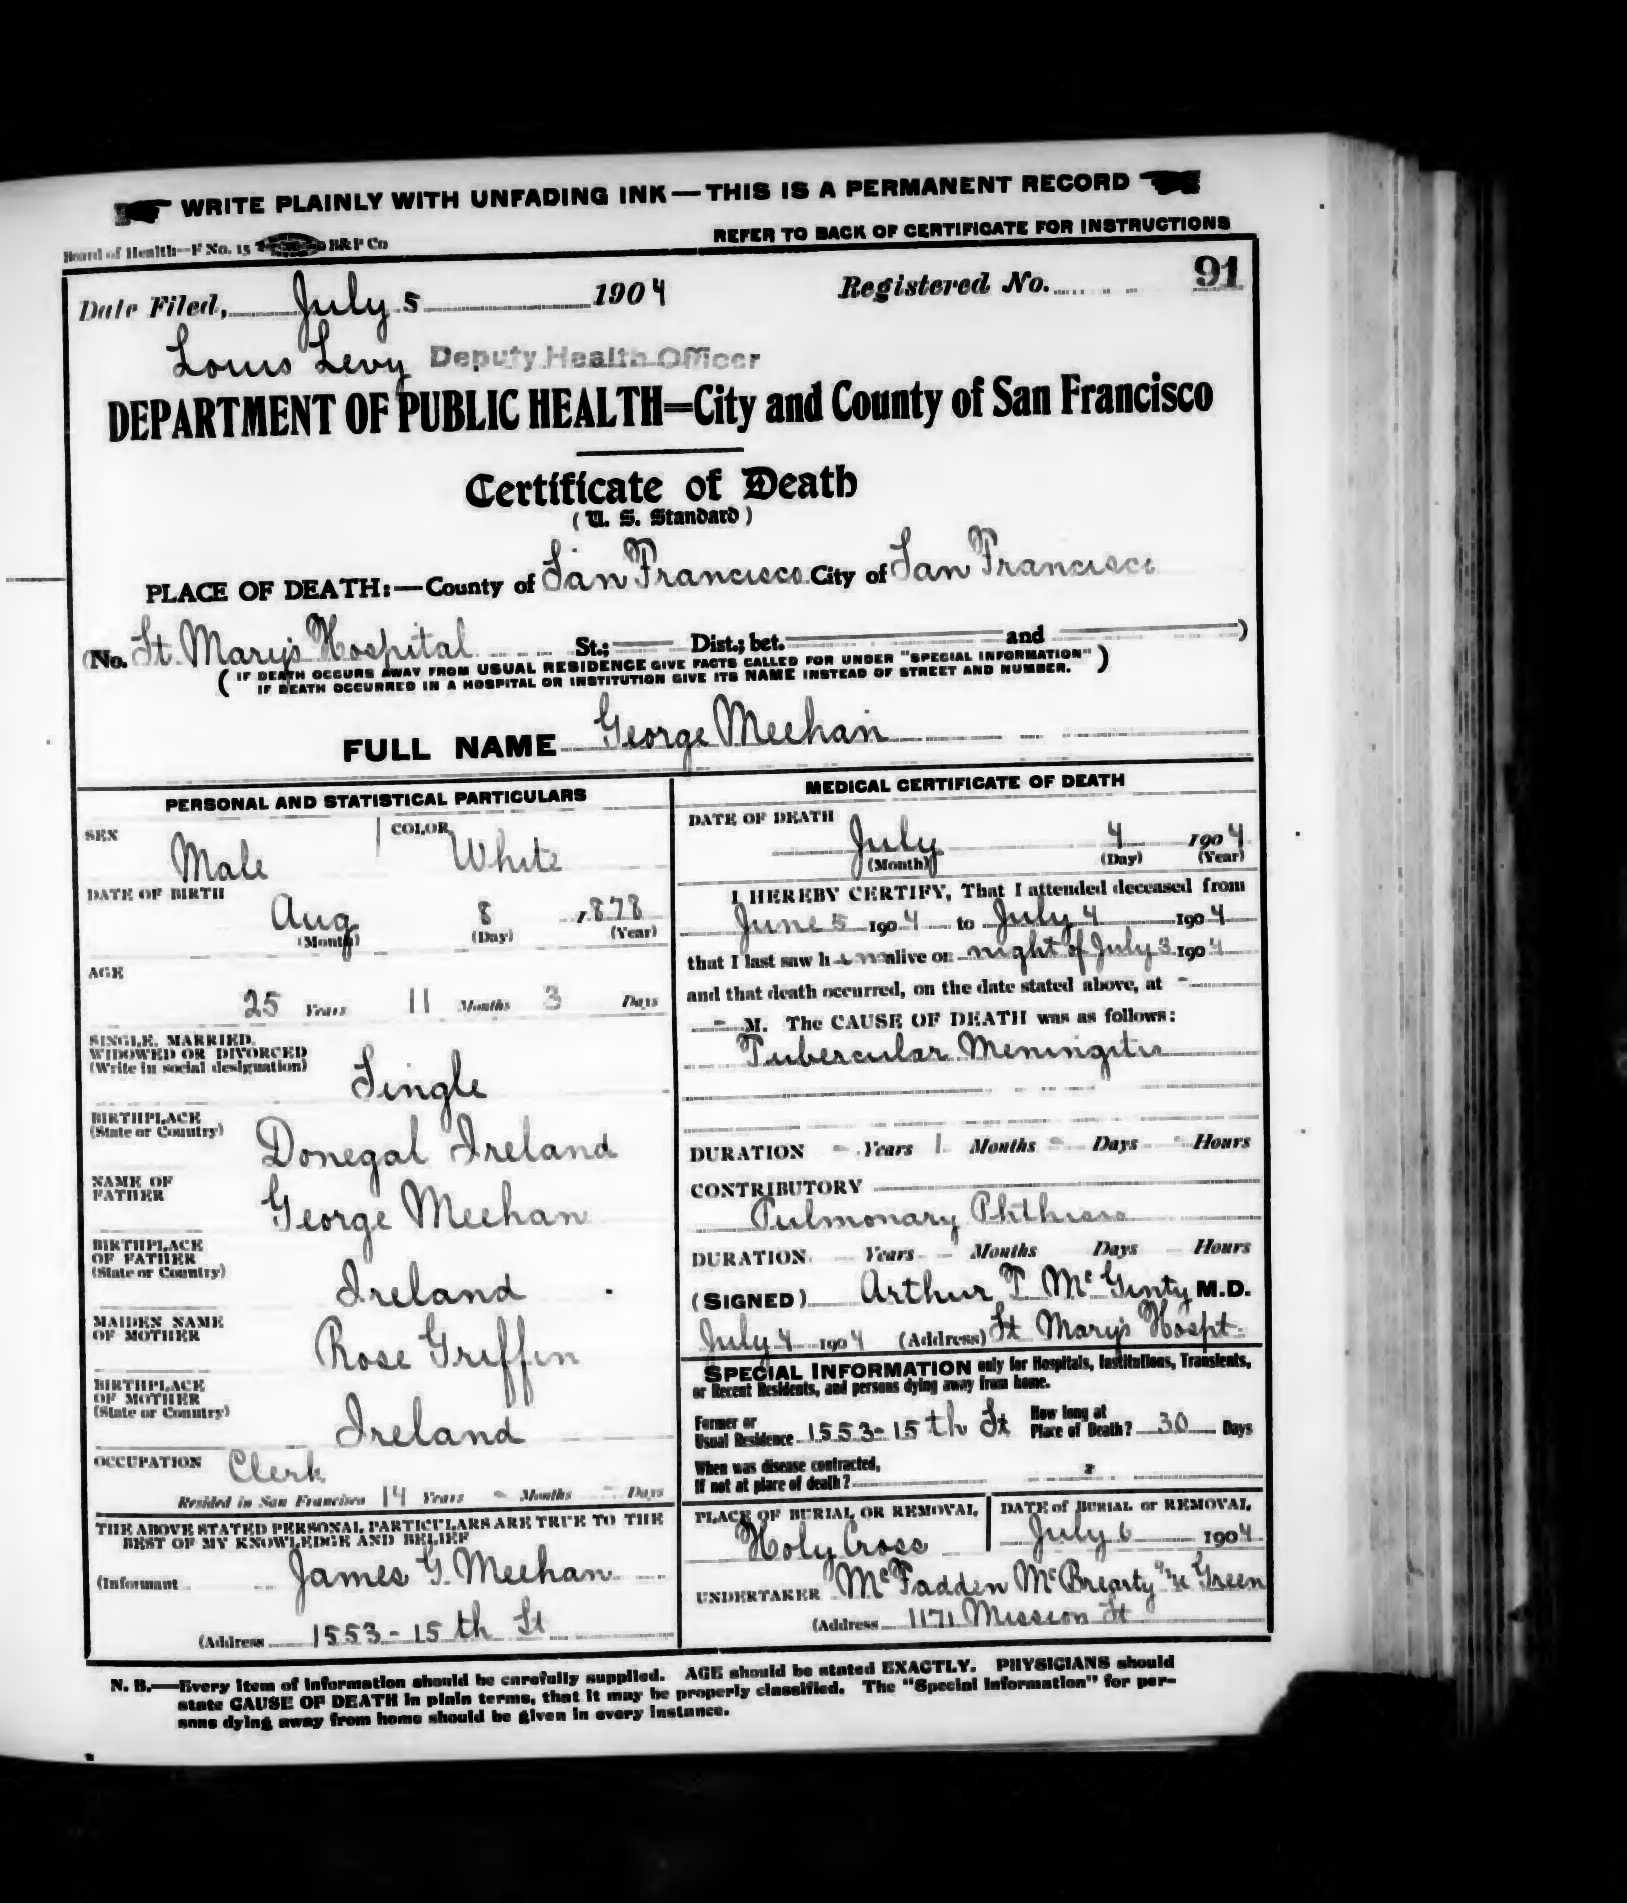 WRITE PLAINLY WITH UNFADING INK—THIS IS A PERMANENT RECORD
Board of Health—F No. 15 B&P Co
REFER TO BACK OF CERTIFICATE FOR INSTRUCTIONS
Date Filed, July 5 1904 Registered No. 91
Louis Levy Deputy Health Officer
DEPARTMENT OF PUBLIC HEALTH=City and County of San Francisco
Certificate of Death
(U. S. Standard)
PLACE OF DEATH:—County of San Francisco City of San Francisco
(No. St. Mary's Hospital St.; Dist.; bet. and )
( IF DEATH OCCURS AWAY FROM USUAL RESIDENCE GIVE FACTS CALLED FOR UNDER "SPECIAL INFORMATION" )
IF DEATH OCCURRED IN A HOSPITAL OR INSTITUTION GIVE ITS NAME INSTEAD OF STREET AND NUMBER.
FULL NAME George Meehan
PERSONAL AND STATISTICAL PARTICULARS
SEX Male COLOR White
DATE OF BIRTH
Aug 8 1878
(Month) (Day) (Year)
AGE
25 Years 11 Months 3 Days
SINGLE, MARRIED,
WIDOWED OR DIVORCED
(Write in social designation)
Single
BIRTHPLACE
(State or Country)
Donegal Ireland
NAME OF
FATHER
George Meehan
BIRTHPLACE
OF FATHER
(State or Country)
Ireland
MAIDEN NAME
OF MOTHER
Rose Griffin
BIRTHPLACE
OF MOTHER
(State or Country)
Ireland
OCCUPATION Clerk
Resided in San Francisco 14 Years - Months - Days
THE ABOVE STATED PERSONAL PARTICULARS ARE TRUE TO THE
BEST OF MY KNOWLEDGE AND BELIEF
(Informant James G. Meehan
(Address 1553-15th St
MEDICAL CERTIFICATE OF DEATH
DATE OF DEATH
July 4 1904
(Month) (Day) (Year)
I HEREBY CERTIFY, That I attended deceased from
June 5 1904 to July 4 1904
that I last saw him alive on night of July 3 1904
and that death occurred, on the date stated above, at -
- M. The CAUSE OF DEATH was as follows:
Tubercular Meningitis
DURATION - Years 1 Months - Days - Hours
CONTRIBUTORY
Pulmonary Phthisis
DURATION Years - Months Days - Hours
(SIGNED) Arthur T. McGinty M.D.
July 4 1904 (Address) St Mary's Hospt.
SPECIAL INFORMATION only for Hospitals, Institutions, Transients,
or Recent Residents, and persons dying away from home.
Former or
Usual Residence 1553-15th St
How long at
Place of Death? 30 Days
When was disease contracted,
If not at place of death?
PLACE OF BURIAL OR REMOVAL
Holy Cross
DATE of BURIAL or REMOVAL
July 6 1904
UNDERTAKER McFadden McBrearty & Green
(Address 1171 Mission St
N. B.—Every item of information should be carefully supplied. AGE should be stated EXACTLY. PHYSICIANS should
state CAUSE OF DEATH in plain terms, that it may be properly classified. The "Special Information" for per-
sons dying away from home should be given in every instance.